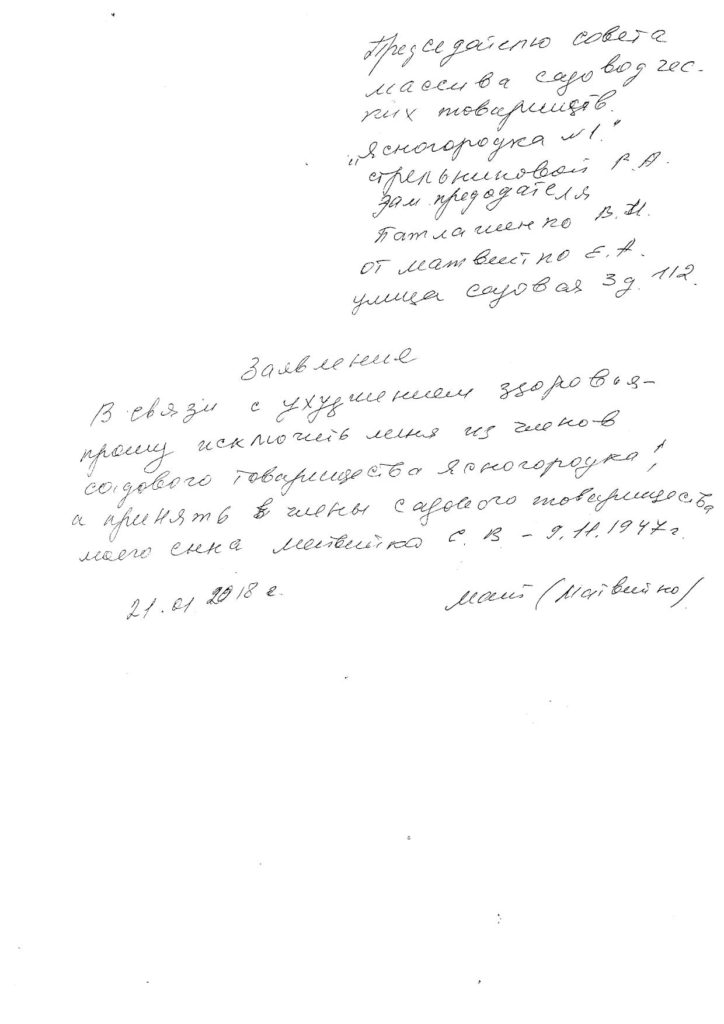 Председателю совета
массива садоводчес-
ких товариществ.
"Ясногородка №1."
Стрельниковой Р.А.
зам. предодателя
Патлашенко В.И.
от Матвейко Е.А.
улица садовая 3 д. 112.
Заявление
В связи с ухудшением здоровья-
прошу исключить меня из членов
садового товарищества Ясногородка 1,
а принять в члены садового товарищества
моего сына Матвейко С. В - 9.11.1947г.
21.01 2018 г. (Матвейко)